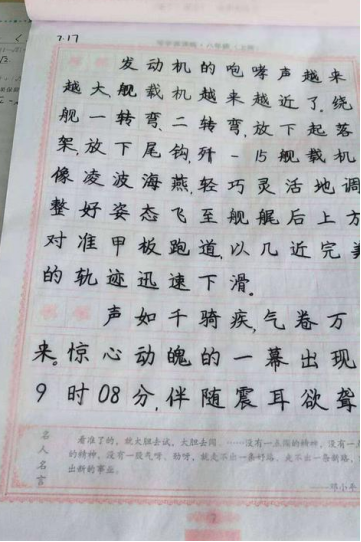 7.17
发动机的咆哮声越来
越大,舰载机越来越近了,绕
舰一转弯、二转弯,放下起落
架,放下尾钩,歼-15舰载机
像凌波海燕,轻巧灵活地调
整好姿态飞至舰艉后上方
对准甲板跑道,以几近完美
的轨迹迅速下滑。
声如千骑疾,气卷万
来。惊心动魄的一幕出现
9时08分,伴随震耳欲聋
名人名言
看准了的,就大胆去试,大胆去闯。——没有一点闯的精神,没有一点
的精神,没有一股气呀、劲呀,就走不出一条好路,走不出一条新路,
出新的事业。
——邓小平